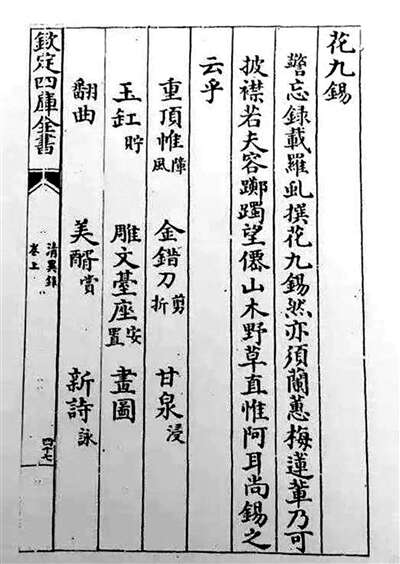 花九錫
警忘錄載羅虬撰花九錫然亦須蘭蕙梅蓮輩乃可
披襟若夫容躑躅望僊山木野草直惟阿耳尚錫之
云乎
重頂帷障風 金錯刀剪折 甘泉浸
玉缸貯 雕文臺座安置 畫圖
翻曲 美醑賞 新詩詠
欽定四庫全書
清異錄
卷上
四十七